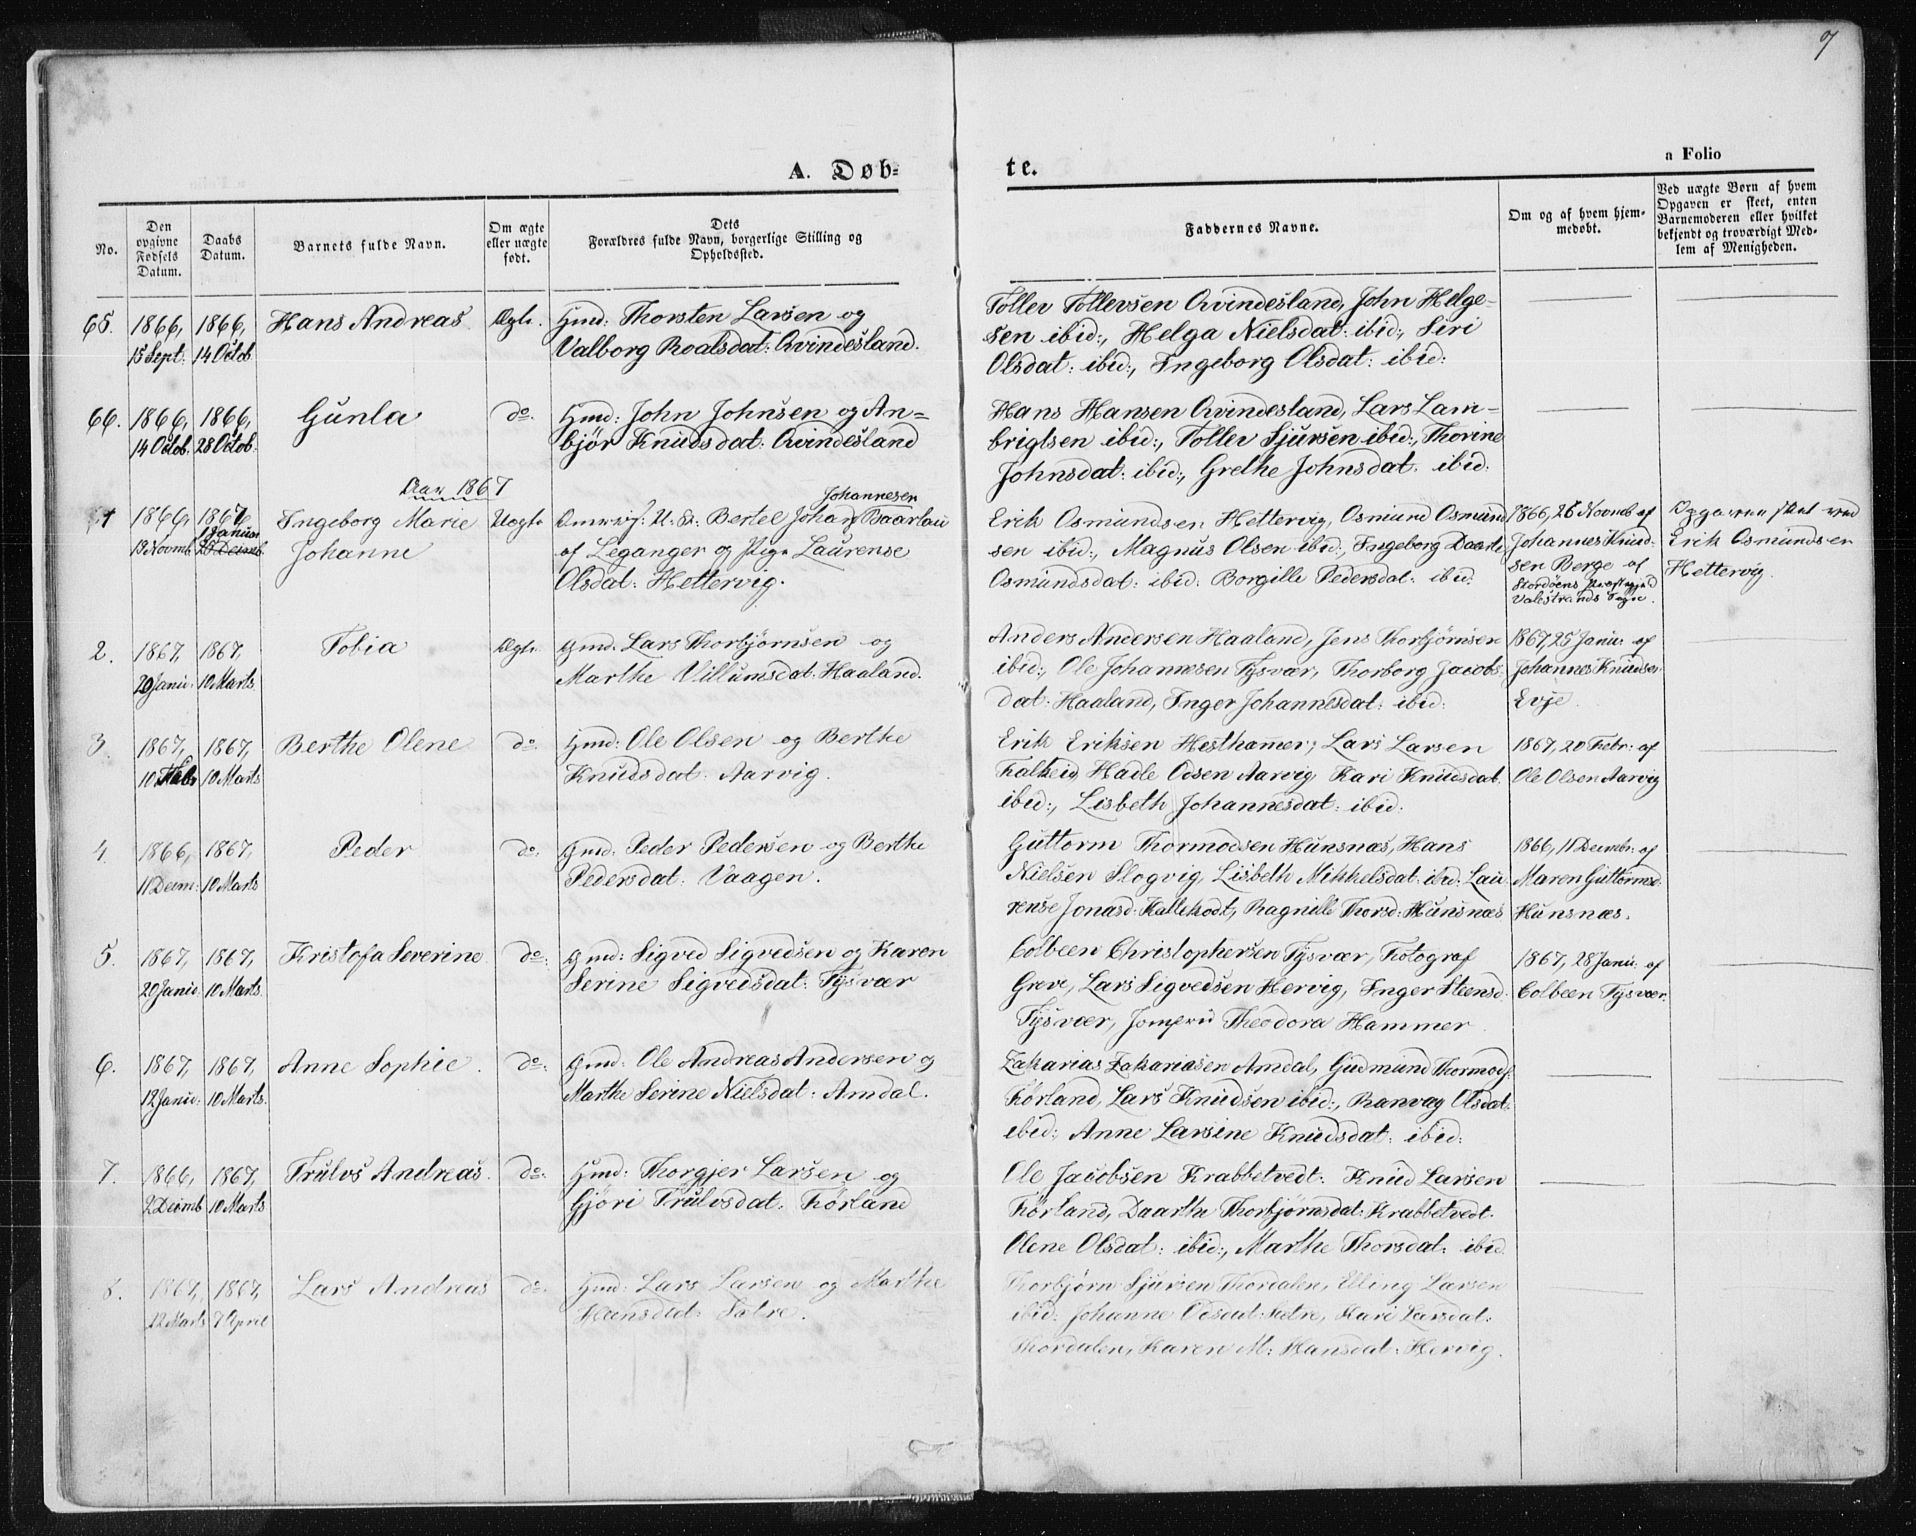 7
A. Døb-
te.
a Folio
No.
Den
opgivne
Fødsels
Datum.
Daabs
Datum.
Barnets fulde Navn.
Om ægte
eller uægte
født.
Dets
Forældres fulde Navn, borgerlige Stilling og
Opholdssted.
Faddernes Navne.
Om og af hvem hjem-
medøbt.
Ved uægte Børn af hvem
Opgaven er skeet, enten
Barnemoderen eller hvilket
bekjendt og troværdigt Med-
lem af Menigheden.
65.
1866,
15 Sept:
1866,
14 Octob
Hans Andreas
Ægte.
Gmd: Thorsten Larsen og
Valborg Roalsdat: Qvindesland.
Toller Tollevsen Qvindesland, John Helge-
sen ibid:, Helga Nielsdat: ibid:, Siri
Olsdat: ibid:, Ingeborg Olsdat: ibid:
66.
1866,
14 Octob.
1866,
28 Octob.
Gunla
do.
Gmd: John Johnsen og An-
bjør Knudsdat: Qvindesland
Hans Hansen Qvindesland, Lars Lam-
brigtsen ibid:, Toller Sjursen ibid:, Thorine
Johnsdat: ibid:, Grethe Johnsdat: ibid:
Aar 1867
1
1866,
19 Novmb.
1867,
1 Januar
26 Decmb.
Ingeborg Marie
Johanne
Uægte
U: K: Bertel Johan Baarlau
Johannesen
af Leganger og Pige Laurense
Olsdat: Hettervig.
Erik Osmundsen Hettervig, Osmund Osmund
sen ibid:, Magnus Olsen ibid:, Ingeborg Daarte
Osmundsdat: ibid: Borgille Pedersdat: ibid:
1866, 26 Novmb af
Johannes Knud-
sen Berge af
Stordøens Præstegjeld
Valestrands Sogn.
Opgaven skeet ved
Erik Osmundsen
Hettervig.
2.
1867,
20 Janu:
1867,
10 Marts
Tobia
Ægte.
Gmd: Lars Thorbjørnsen og
Marthe Villumsdat: Haaland.
Anders Andersen Haaland, Jens Thorbjørnsen
ibid:, Ole Johannesen Tysvær, Thorborg Jacobs-
dat: Haaland, Inger Johannesdat: ibid:
1867, 25 Janu: af
Johannes Knudsen
Evje.
3.
1867,
10 Febr
1867,
10 Marts
Berthe Olene
do.
Gmd: Ole Olsen og Berthe
Knudsdat: Aarvig.
Erik Eriksen Hesthamer, Lars Larsen
Falkeid, Hadle Odsen Aarvig, Kari Knudsdat:
ibid:, Lisbeth Johannesdat: ibid.
1867, 20 Febr: af
Ole Olsen Aarvig
4.
1866,
11 Decm:
1867,
10 Marts
Peder
do.
Gmd: Peder Pedersen og Berthe
Pedersdat: Vaagen.
Guttorm Thormodsen Hunsnæs, Hans
Nielsen Slogvig, Lisbeth Mikkelsdat: ibid: Lau-
rense Jonasd: Kallekodt, Ragnille Thorsd: Hunsnæs
1866, 11 Decmbr: af
Maren Guttormsd:
Hunsnæs.
5.
1867,
20 Janu:
1867,
10 Marts
Kristofa Severine
do:
Gmd: Sigved Sigvedsen og Karen
Serine Sigvedsdat: Tysvær
Colbeen Christophersen Tysvær, Fotograf
Greve, Lars Sigvedsen Hervig, Inger Steensd:
Tysvær, Jomfru Theodora Hammer
1867, 28 Janu: af
Colbeen Tysvær.
6.
1867,
12 Janu:
1867,
10 Marts.
Anne Sophie.
do:
Gmd: Ole Andreas Andersen og
Marthe Serine Nielsdat: Amdal.
Zakarias Zakariasen Amdal, Gudmund Thormods
Førland, Lars Knudsen ibid:, Ranvag Olsdat:
ibid:, Anne Larsine Knudsdat: ibid:
7.
1866,
2 Decmb
1867,
10 Marts
Trulvs Andreas.
do:
Gmd: Thorgjer Larsen og
Gjøri Trulvsdat: Førland
Ole Jacobsen Krabbetvedt: Knud Larsen
Førland, Daarthe Thorbjørnsdat: Krabbetvedt.
Olene Olsdat: ibid:, Marthe Thorsdat: ibid
8.
1867,
22 Marts
1867,
7 April
Lars Andreas
do:
Gmd: Lars Larsen og Marthe
Hansdat: Sætre.
Thorbjørn Sjursen Thordalen, Elling Larsen
ibid: Johanne Odsdat: Sætre, Kari Larsdat:
Thordalen, Karen M: Hansdat: Hervig.